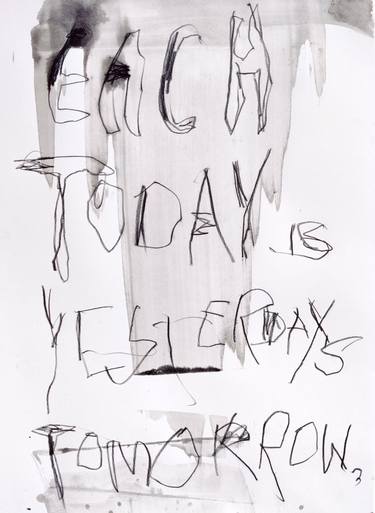 EACH
TODAY IS
YESTERDAYS
TOMORROW
3